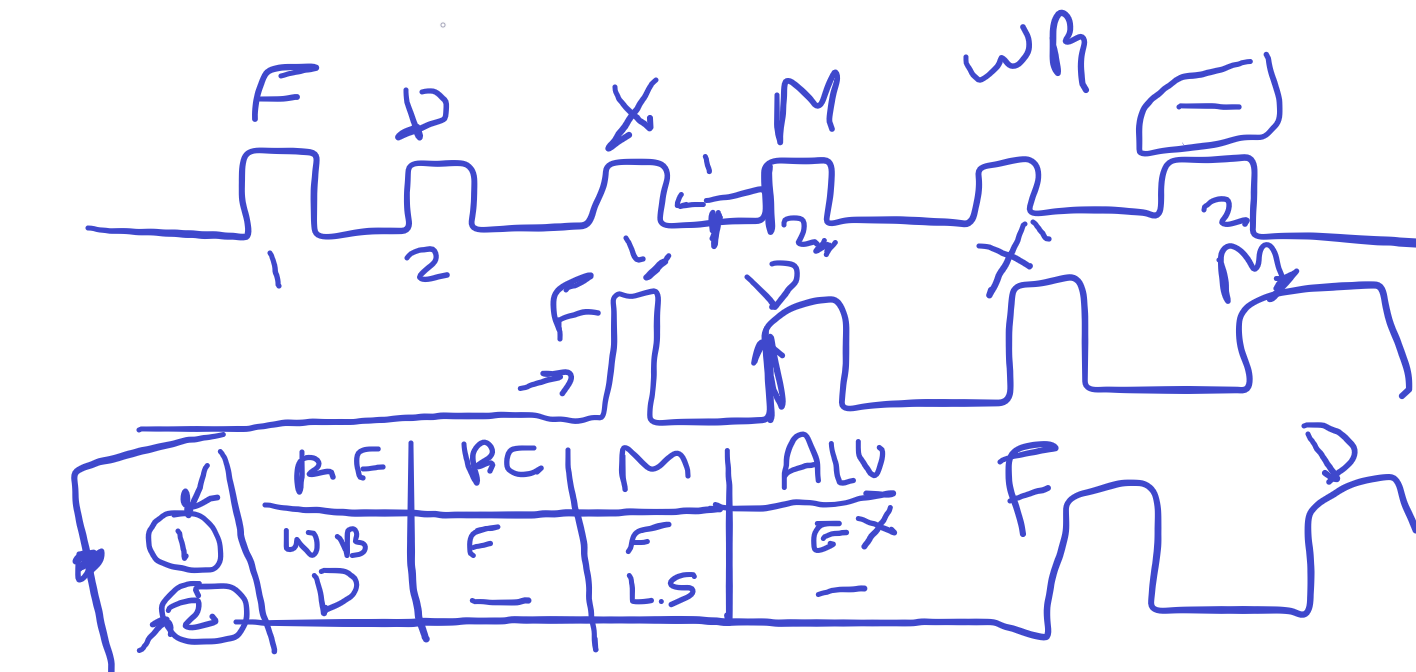 F D X M WR
1 2 1 2 2
F D X M
RF RC M ALU F D
1 WB F F EX
2 D — L.S —